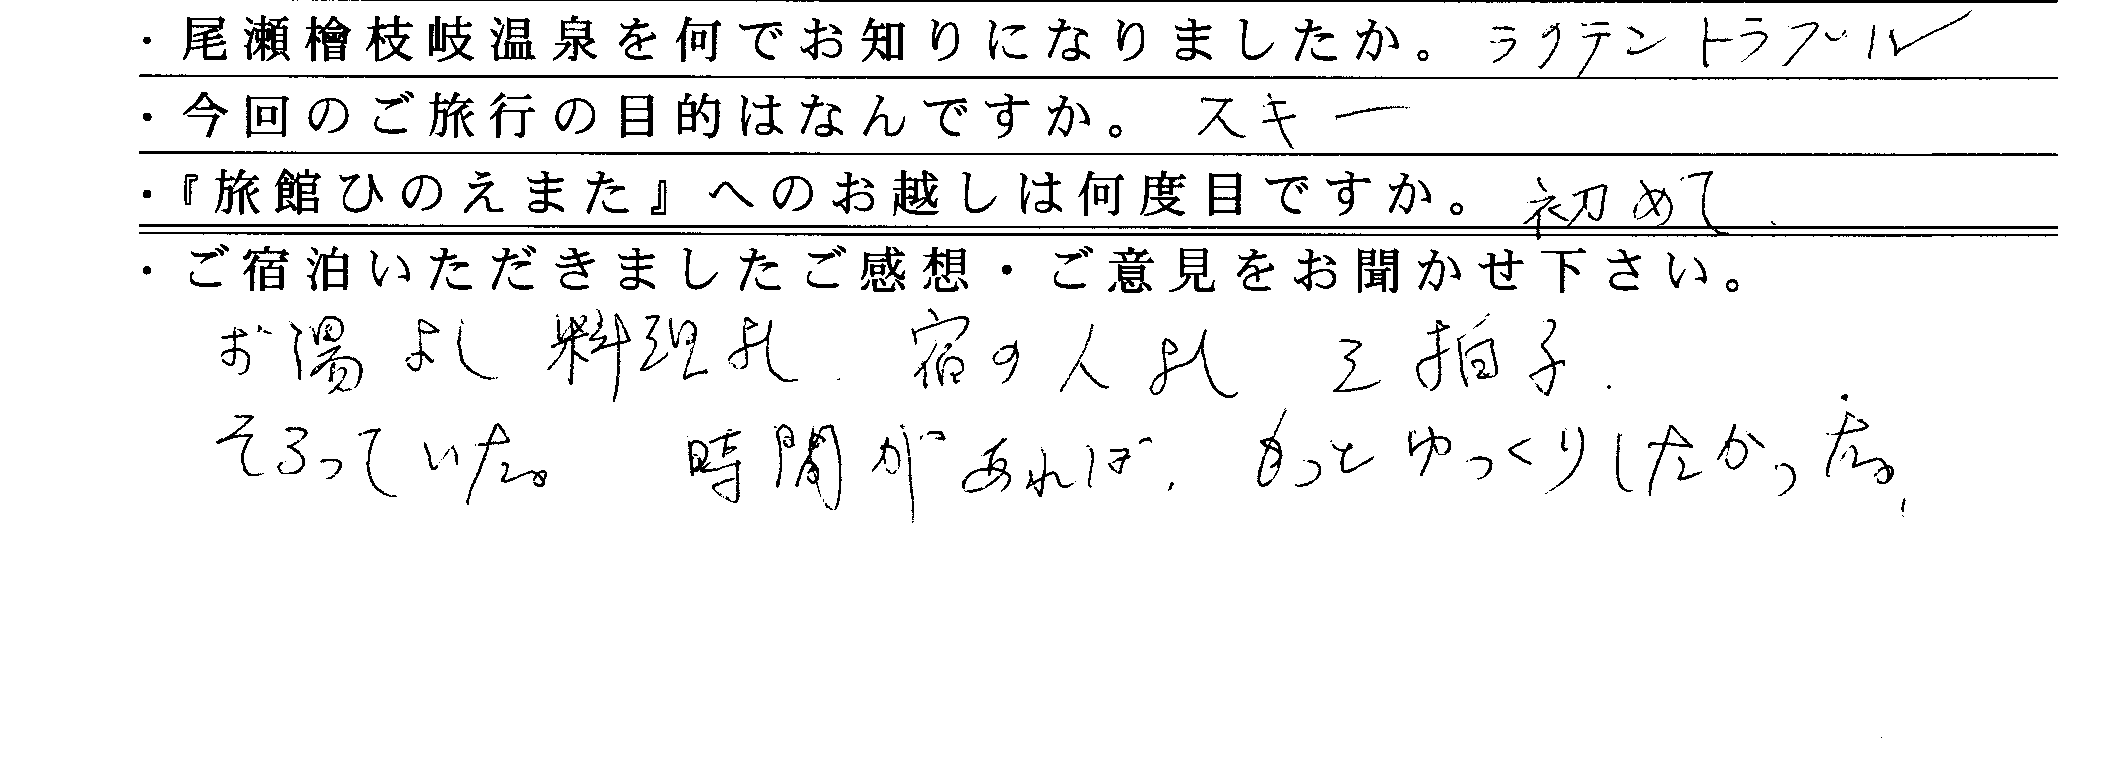 ・尾瀬檜枝岐温泉を何でお知りになりましたか。 ラクテントラブル
・今回のご旅行の目的はなんですか。 スキー
・『旅館ひのえまた』へのお越しは何度目ですか。 初めて.
・ご宿泊いただきましたご感想・ご意見をお聞かせ下さい。
お湯よし 料理よし. 宿の人よし 三拍子.
そろっていた。 時間があれば、もっとゆっくりしたかった。